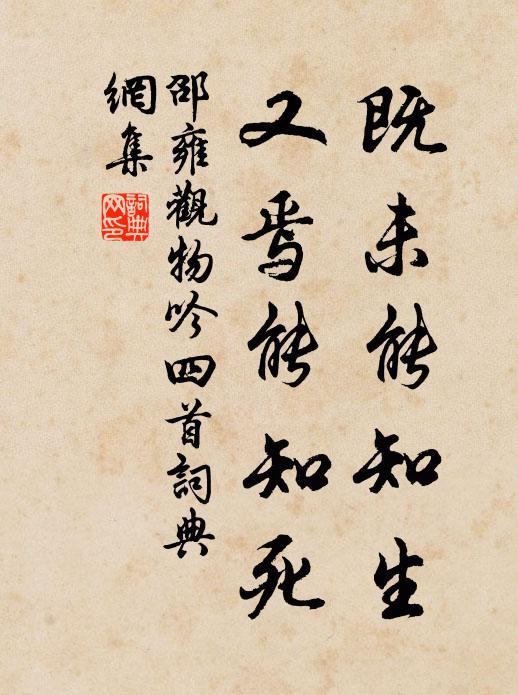 既未能知生
又焉能知死
邵雍觀物吟四首詞典
網集
詞典網印